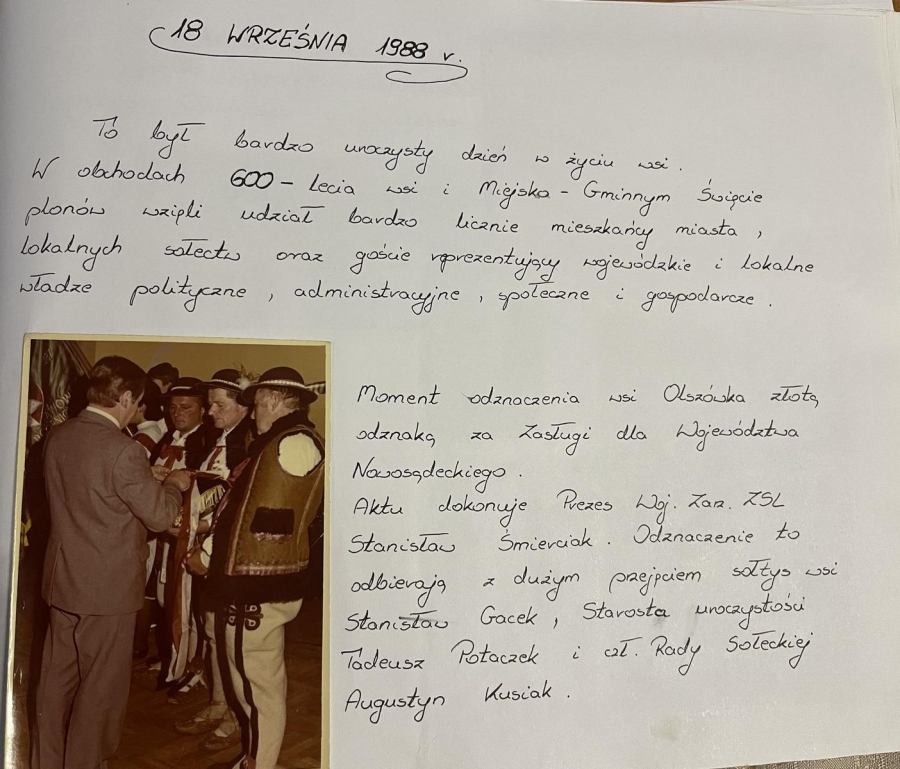 18 WRZEŚNIA 1988 r.
To był bardzo uroczysty dzień w życiu wsi.
W obchodach 600-lecia wsi i Miejsko-Gminnym Święcie
plonów wzięli udział bardzo licznie mieszkańcy miasta,
lokalnych sołectw oraz goście reprezentujący wojewódzkie i lokalne
władze polityczne, administracyjne, społeczne i gospodarcze.
Moment odznaczenia wsi Olszówka złotą
odznaką za Zasługi dla Województwa
Nowosądeckiego.
Aktu dokonuje Prezes Woj. Zarz. ZSL
Stanisław Śmierciak. Odznaczenie to
odbierają z dużym przejęciem sołtys wsi
Stanisław Gacek, Starosta uroczystości
Tadeusz Potaczek i czł. Rady Sołeckiej
Augustyn Kusiak.